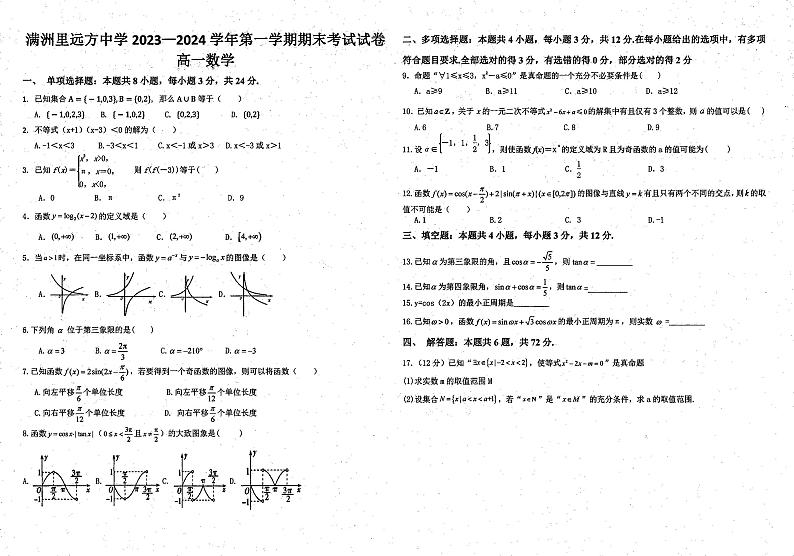 满洲里远方中学2023—2024学年第一学期期末考试试卷
高一数学
一、 单项选择题：本题共8小题，每小题3分，共24分.
1. 已知集合A={-1,0,3},B={0,2}, 那么A∪B等于( )
A. {-1,0,2,3} B. {-1,0,2} C. {0,2,3} D. {0,2}
2. 不等式(x+1)(x-3)<0的解为( )
A.-1<x<3 B.-3<x<1 C.x<-1或x>3 D.x<-3或x>1
3. 已知f(x)={x²，x>0, π，x=0, 0，x<0, 则f(f(-3))等于( )
A. 0 B. π C. π² D. 9
4. 函数y=log₂(x-2)的定义域是( )
A. (0,+∞) B. (1,+∞) C. (2,+∞) D. [4,+∞)
5. 当a>1时，在同一坐标系中，函数y=a⁻ˣ与y=-logₐx的图像是( )
A. B. C. D.
6.下列角α位于第三象限的是( )
A.α=3 B.α=2π/3 C.α=-210° D.α=-3
7.已知函数f(x)=2sin(2x-π/6)，若要得到一个奇函数的图像，则可以将函数( )
A.向左平移π/6个单位长度 B.向左平移π/12个单位长度
C.向右平移π/6个单位长度 D. 向右平移π/12个单位长度
8.函数y=cosx·|tanx|（0≤x<3π/2且x≠π/2）的大致图象是( )
A. B. C. D.
二、多项选择题：本题共4小题，每小题3分，共12分.在每小题给出的选项中，有多项
符合题目要求.全部选对的得3分，有选错的得0分，部分选对的得2分
9. 命题“∀1≤x≤3，x²-a≤0”是真命题的一个充分不必要条件是( )
A. a≥9 B. a≥11 C. a≥10 D. a≥12
10. 已知a∈Z，关于x的一元二次不等式x²-6x+a≤0的解集中有且仅有3个整数，则a的值可以是( )
A.6 B.7 C.8 D.9
11.设α∈{-1, 1, 1/2, 3}，则使函数f(x)=x^α的定义域为R且为奇函数的a的值可能为( )
A. -1 B. 1 C. 1/2 D. 3
12.函数f(x)=cos(x-π/2)+2|sin(π+x)|(x∈[0,2π])的图像与直线y=k有且只有两个不同的交点，则k的取
值不可能是( )
A.1 B.2 C. 3 D.-1
三、填空题：本题共4小题，每小题3分，共12分.
13.已知α为第三象限的角，且cosα=-√5/5，则tanα=
14.已知α为第四象限角，sinα+cosα=1/5，则tanα=
15.y=cos（2x）的最小正周期是
16.已知ω>0，函数f(x)=sinωx+√3cosωx的最小正周期为π，则实数ω=
四、 解答题：本题共6题，共72分.
17.(12分)已知“∃x∈{x|-2<x<2}，使等式x²-2x-m=0”是真命题
(1)求实数m的取值范围M
(2)设集合N={x|a<x<a+1}，若“x∈N”是“x∈M”的充分条件，求a的取值范围.